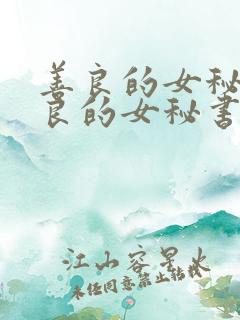 善良的女秘
良的女秘书
江山容星火
未经同意禁止转载